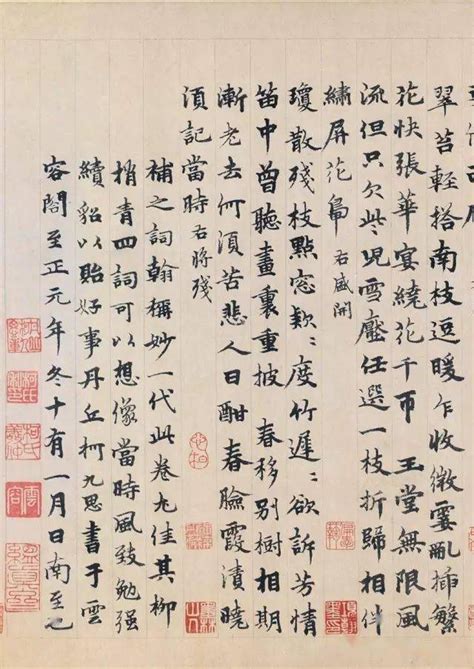 翠苔輕搭南枝逗暖乍收微霎亂插繁
花快張華宴繞花千帀玉堂無限風
流但只欠些兒雪壓任選一枝折歸相伴
繡屏花扁 右盛開
瓊散殘枝點窓款〻度竹遲〻欲訴芳情
笛中曾聽畫裏重披 春移別樹相期
漸老去何須苦悲人日酣春臉霞漬曉
須記當時 右將殘
補之詞翰稱妙一代此卷尤佳其柳
梢青四詞可以想像當時風致勉强
續貂以貽好事丹丘柯九思書于雲
容閣至正元年冬十有一月日南至也
柯氏敬仲